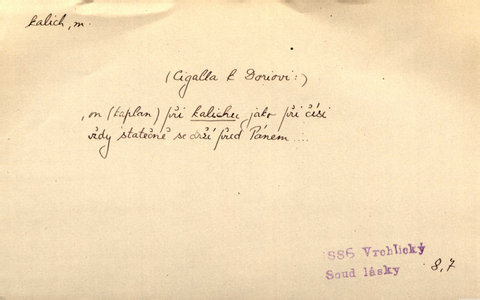 kalich, m.
(Cigalla k Doriovi:)
, on (kaplan) při kalichu, jako při číši
vždy statečně se drží před Pánem....
SS6 Vrchlický
Soud lásky 8,7